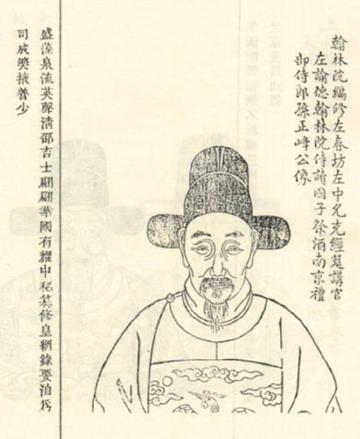 翰林院編修左春坊左中允充經筵講官
左諭德翰林院侍讀囯子祭酒南京禮
部侍郎孫正峰公像
盛藻泉流英聲清邵吉士翩翩華國有耀中秘纂修皇綱錄要洎為
司成奬掖譽少